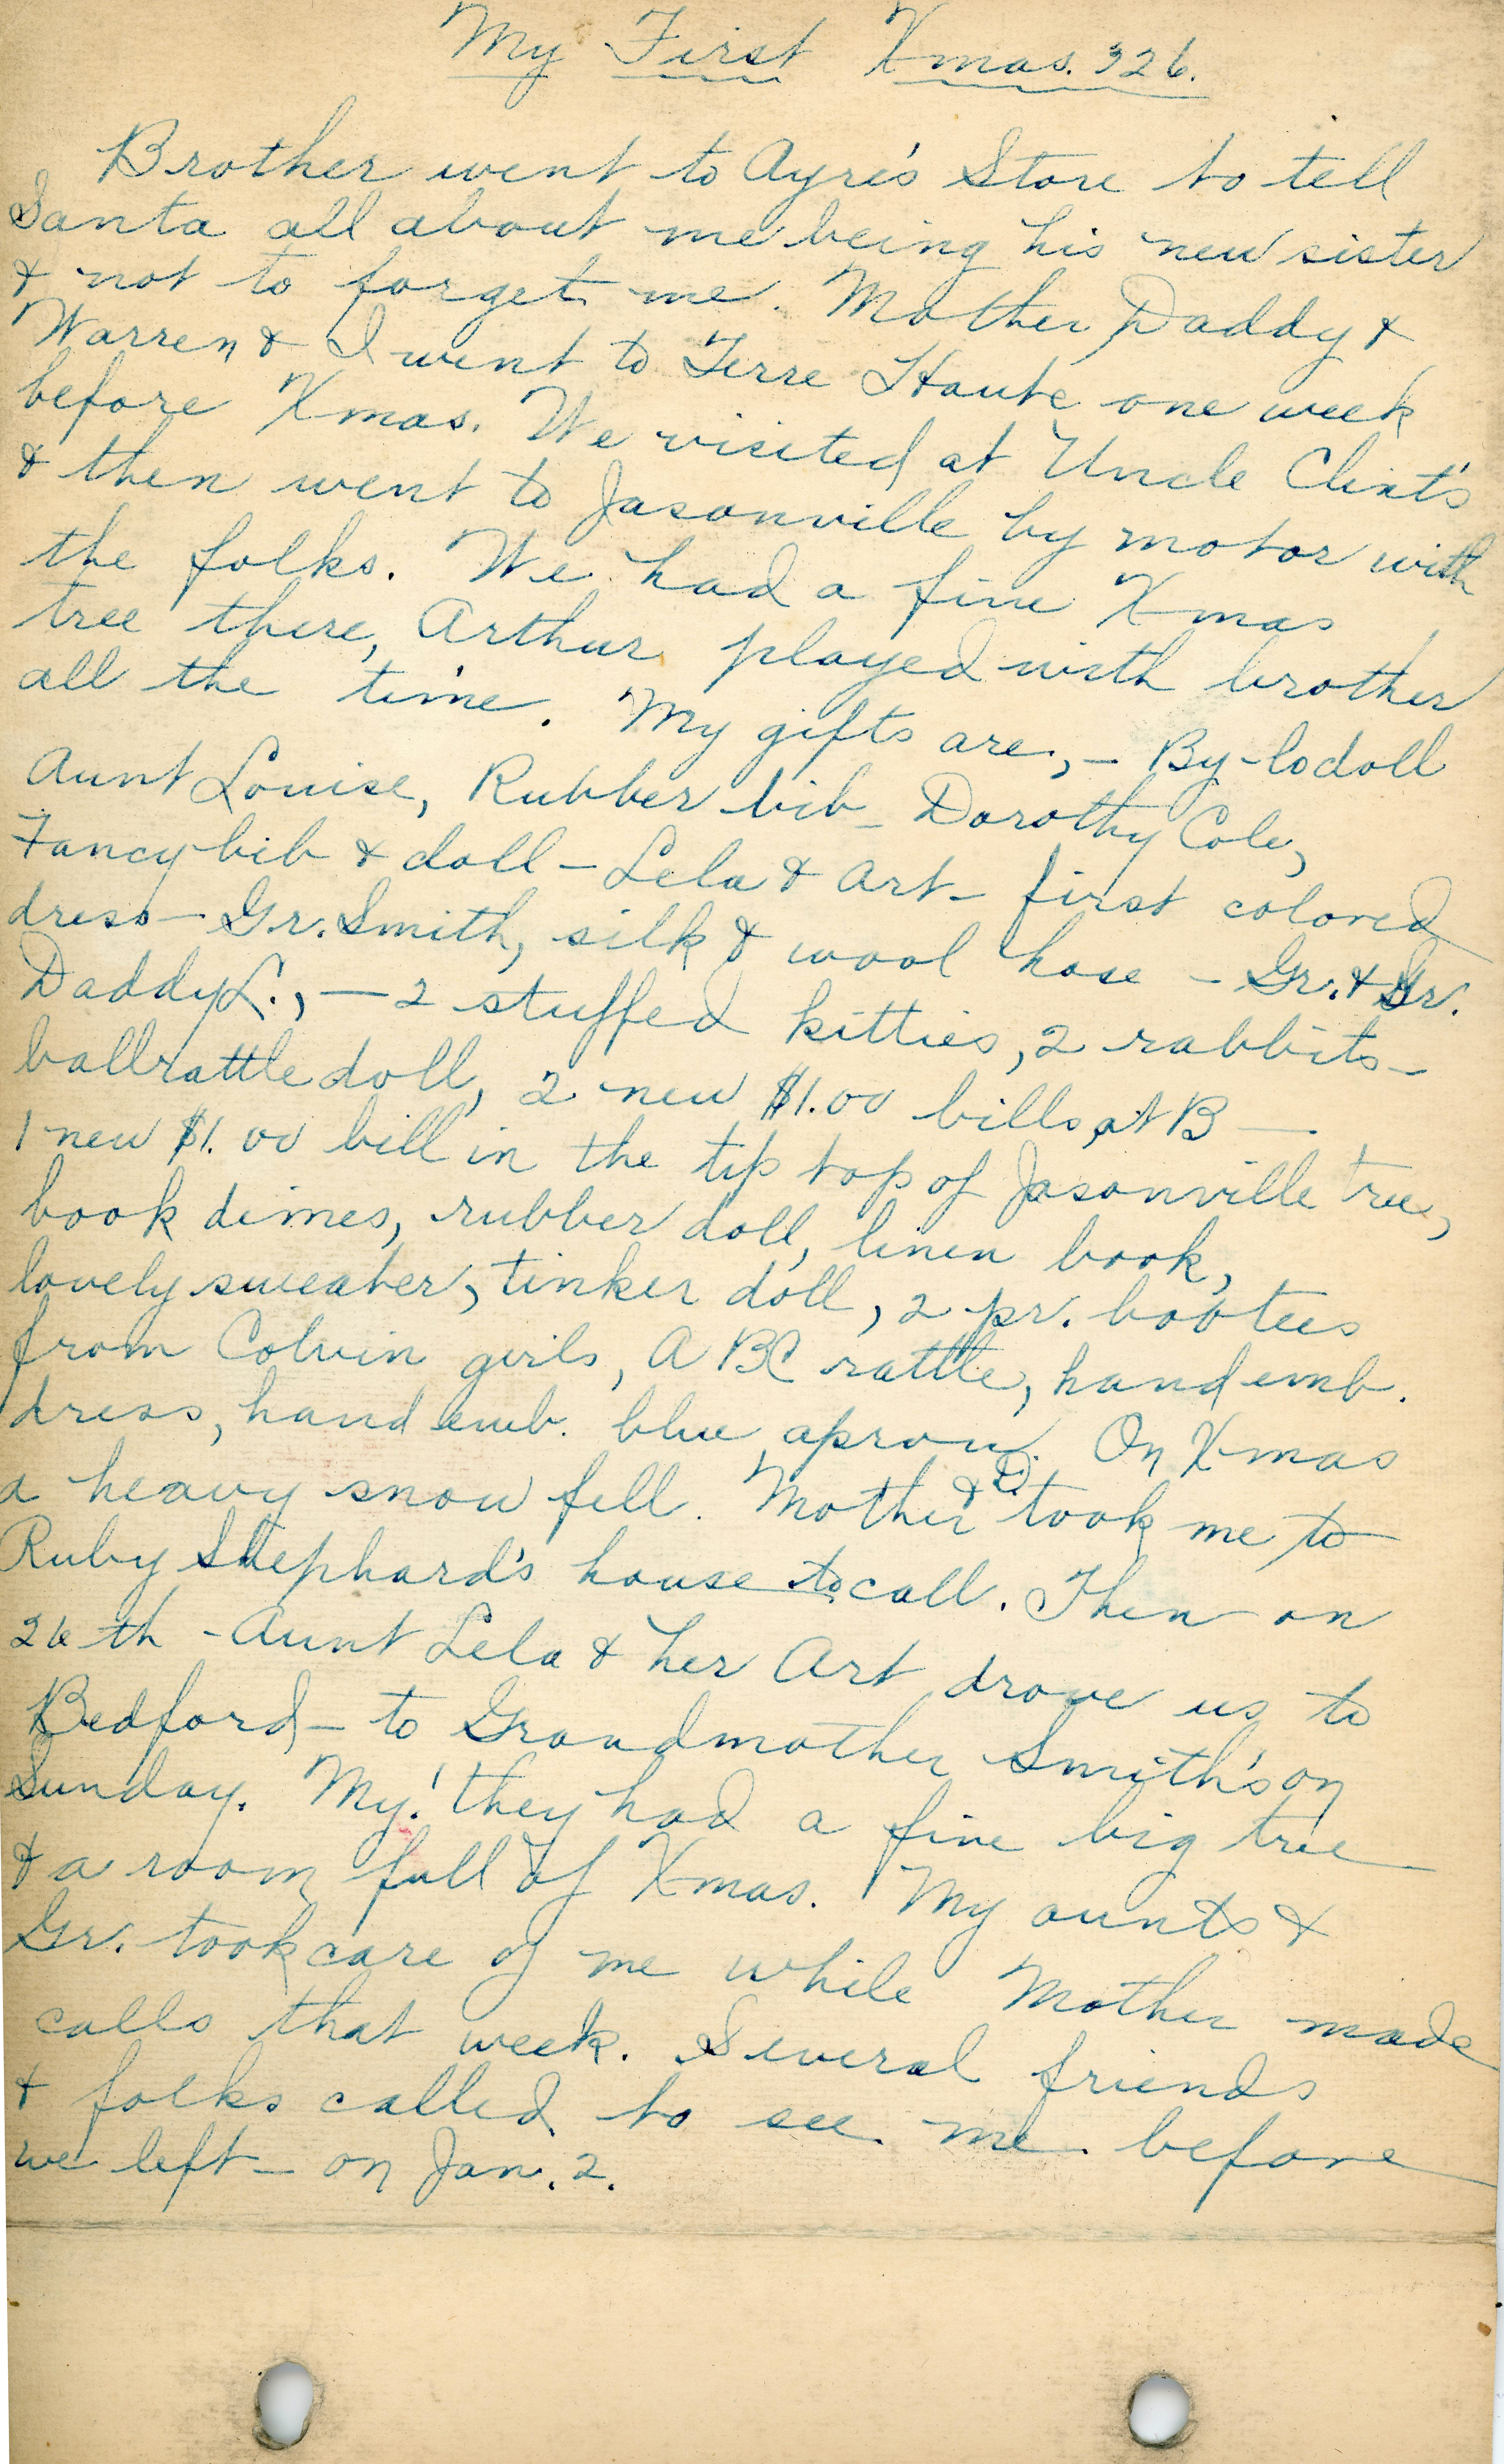 My First Xmas. '26.
Brother went to Ayre's Store to tell
Santa all about me being his new sister
& not to forget me. Mother, Daddy &
Warren & I went to Terre Haute one week
before Xmas. We visited at Uncle Clint's
& then went to Jasonville by motor with
the folks. We had a fine Xmas
tree there, Arthur played with brother
all the time. My gifts are, - By-lo doll
Aunt Louise, Rubber bib - Dorothy Cole,
Fancy bib & doll - Lela & Art - first colored
dress - Gr. Smith, silk & wool hose - Gr. & Gr.
Daddy L., - 2 stuffed kitties, 2 rabbits -
ball rattle doll, 2 new $1.00 bills at B -
1 new $1.00 bill in the tip top of Jasonville tree,
book dimes, rubber doll, linen book,
lovely sweater, tinker doll, 2 pr. bootees
from Colvin girls, A BC rattle, hand emb.
dress, hand emb. blue apron. On Xmas
a heavy snow fell. Mother & D. took me to
Ruby Shephard's house to call. Then on
26th - Aunt Lela & her Art drove us to
Bedford - to Grandmother Smith's on
Sunday. My! they had a fine big tree
& a room full of Xmas. My aunts &
Gr. took care of me while Mother made
calls that week. Several friends
& folks called to see me before
we left - on Jan. 2.